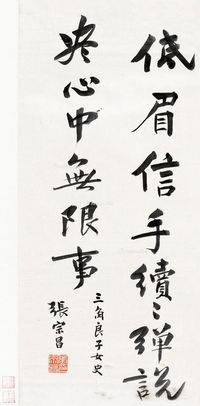 低眉信手續〻彈說
尽心中無限事
三角良子女史
張宗昌